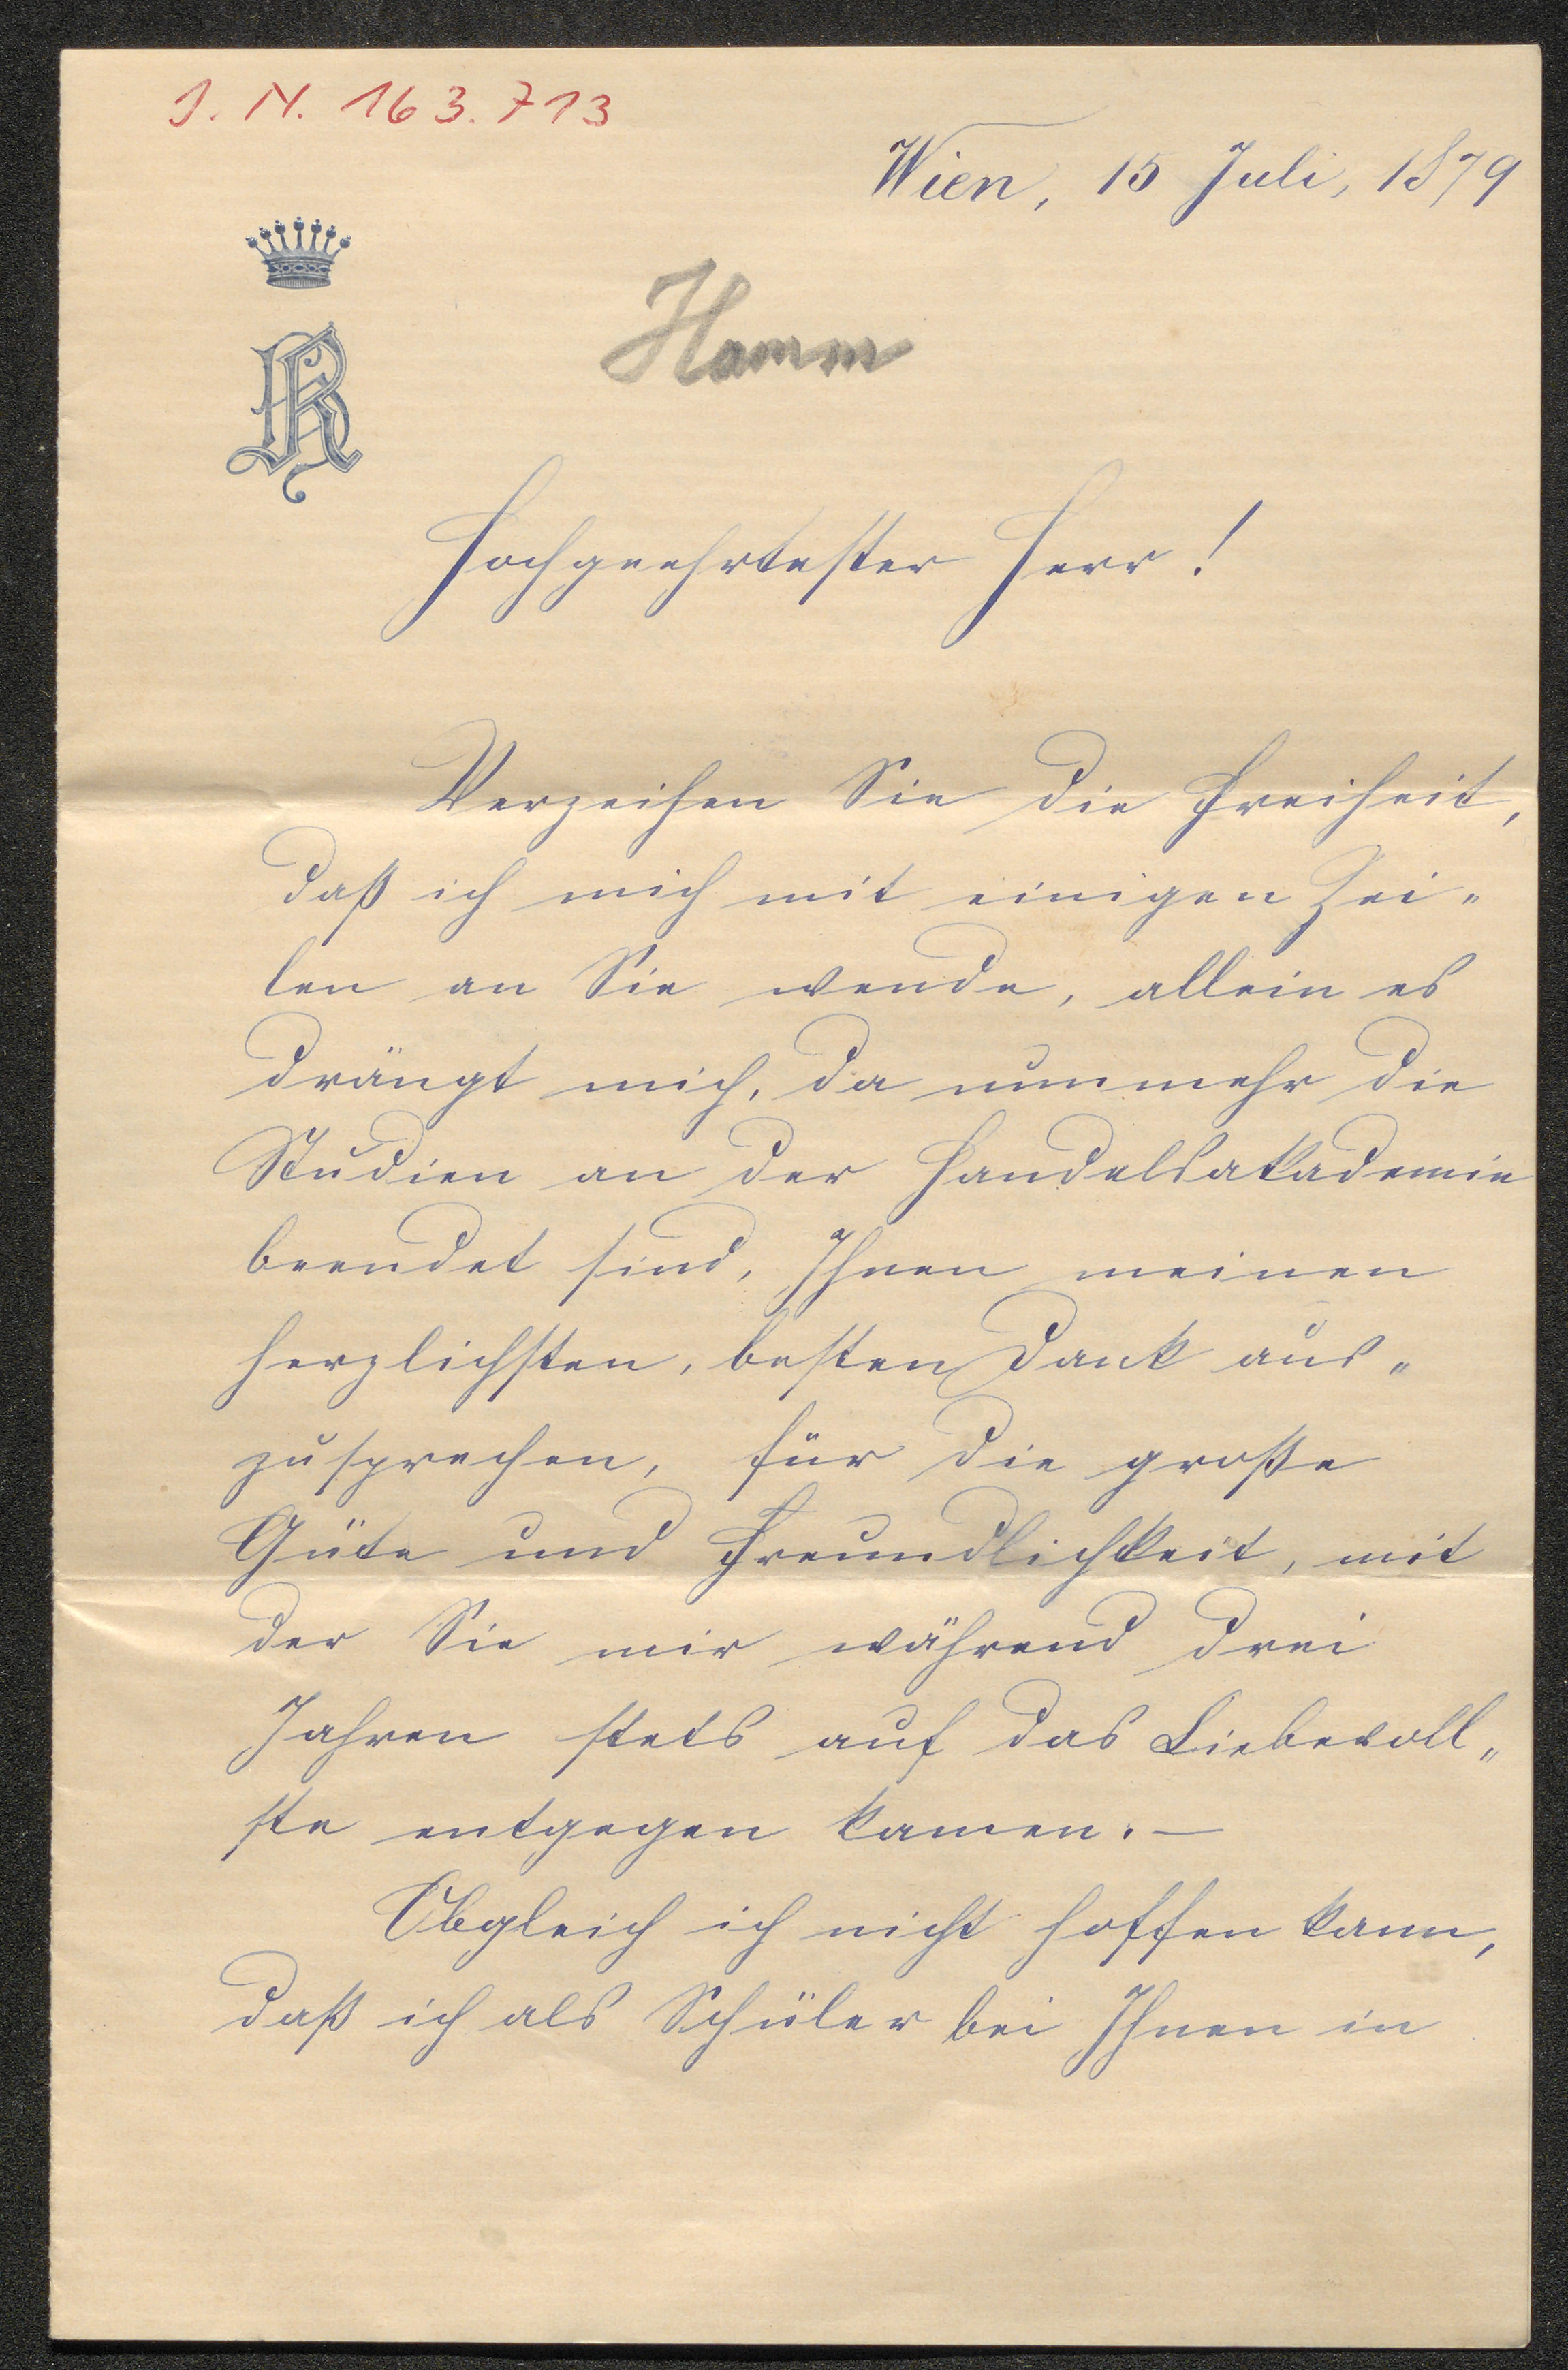 J. N. 163.713
Wien, 15 Juli, 1879
Hamm
K
Hochgeehrtester Herr!
Verzeihen Sie die Freiheit,
daß ich mich mit einigen Zei„
len an Sie wende, allein es
drängt mich, da nunmehr die
Studien an der Handelsakademie
beendet sind, Ihnen meinen
herzlichsten, besten Dank aus„
zusprechen, für die große
Güte und Freundlichkeit, mit
der Sie mir während drei
Jahren stets auf das Liebevoll„
ste entgegen kamen. —
Obgleich ich nicht hoffen kann,
daß ich als Schüler bei Ihnen in